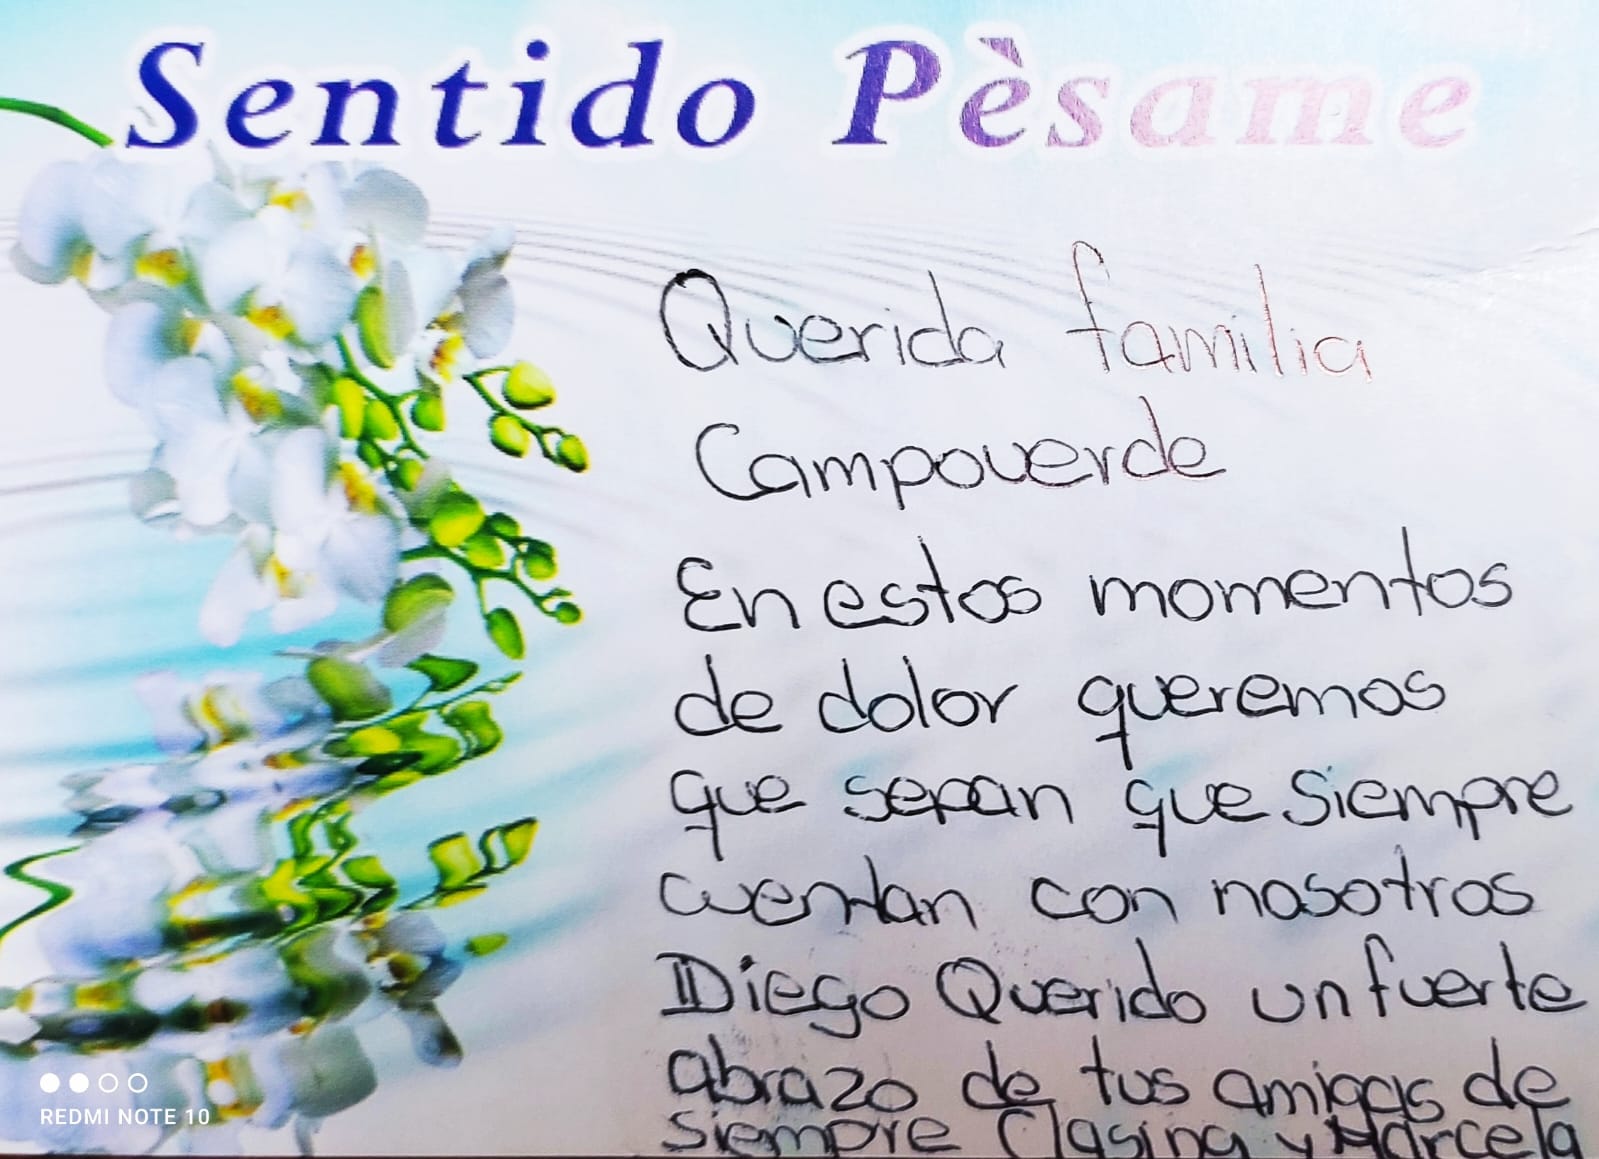 Sentido Pèsame
Querida familia
Campoverde
En estos momentos
de dolor queremos
que sepan que siempre
cuentan con nosotros
Diego Querido un fuerte
abrazo de tus amigas de
siempre y Marcela
REDMI NOTE 10